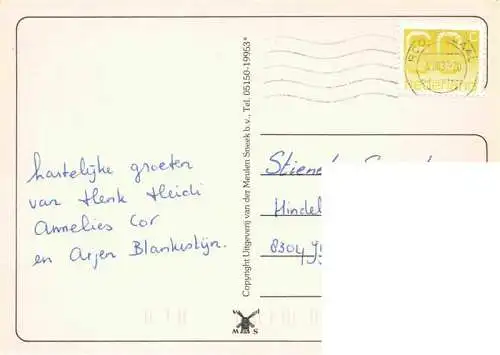 hartelijke groeten
van Henk Heidi
Annelies Cor
en Arjen Blankestijn.
Copyright Uitgeverij van der Meulen Sneek b.v., Tel. 05150-19953*
60 c
nederland
Hindel
8304
MMS